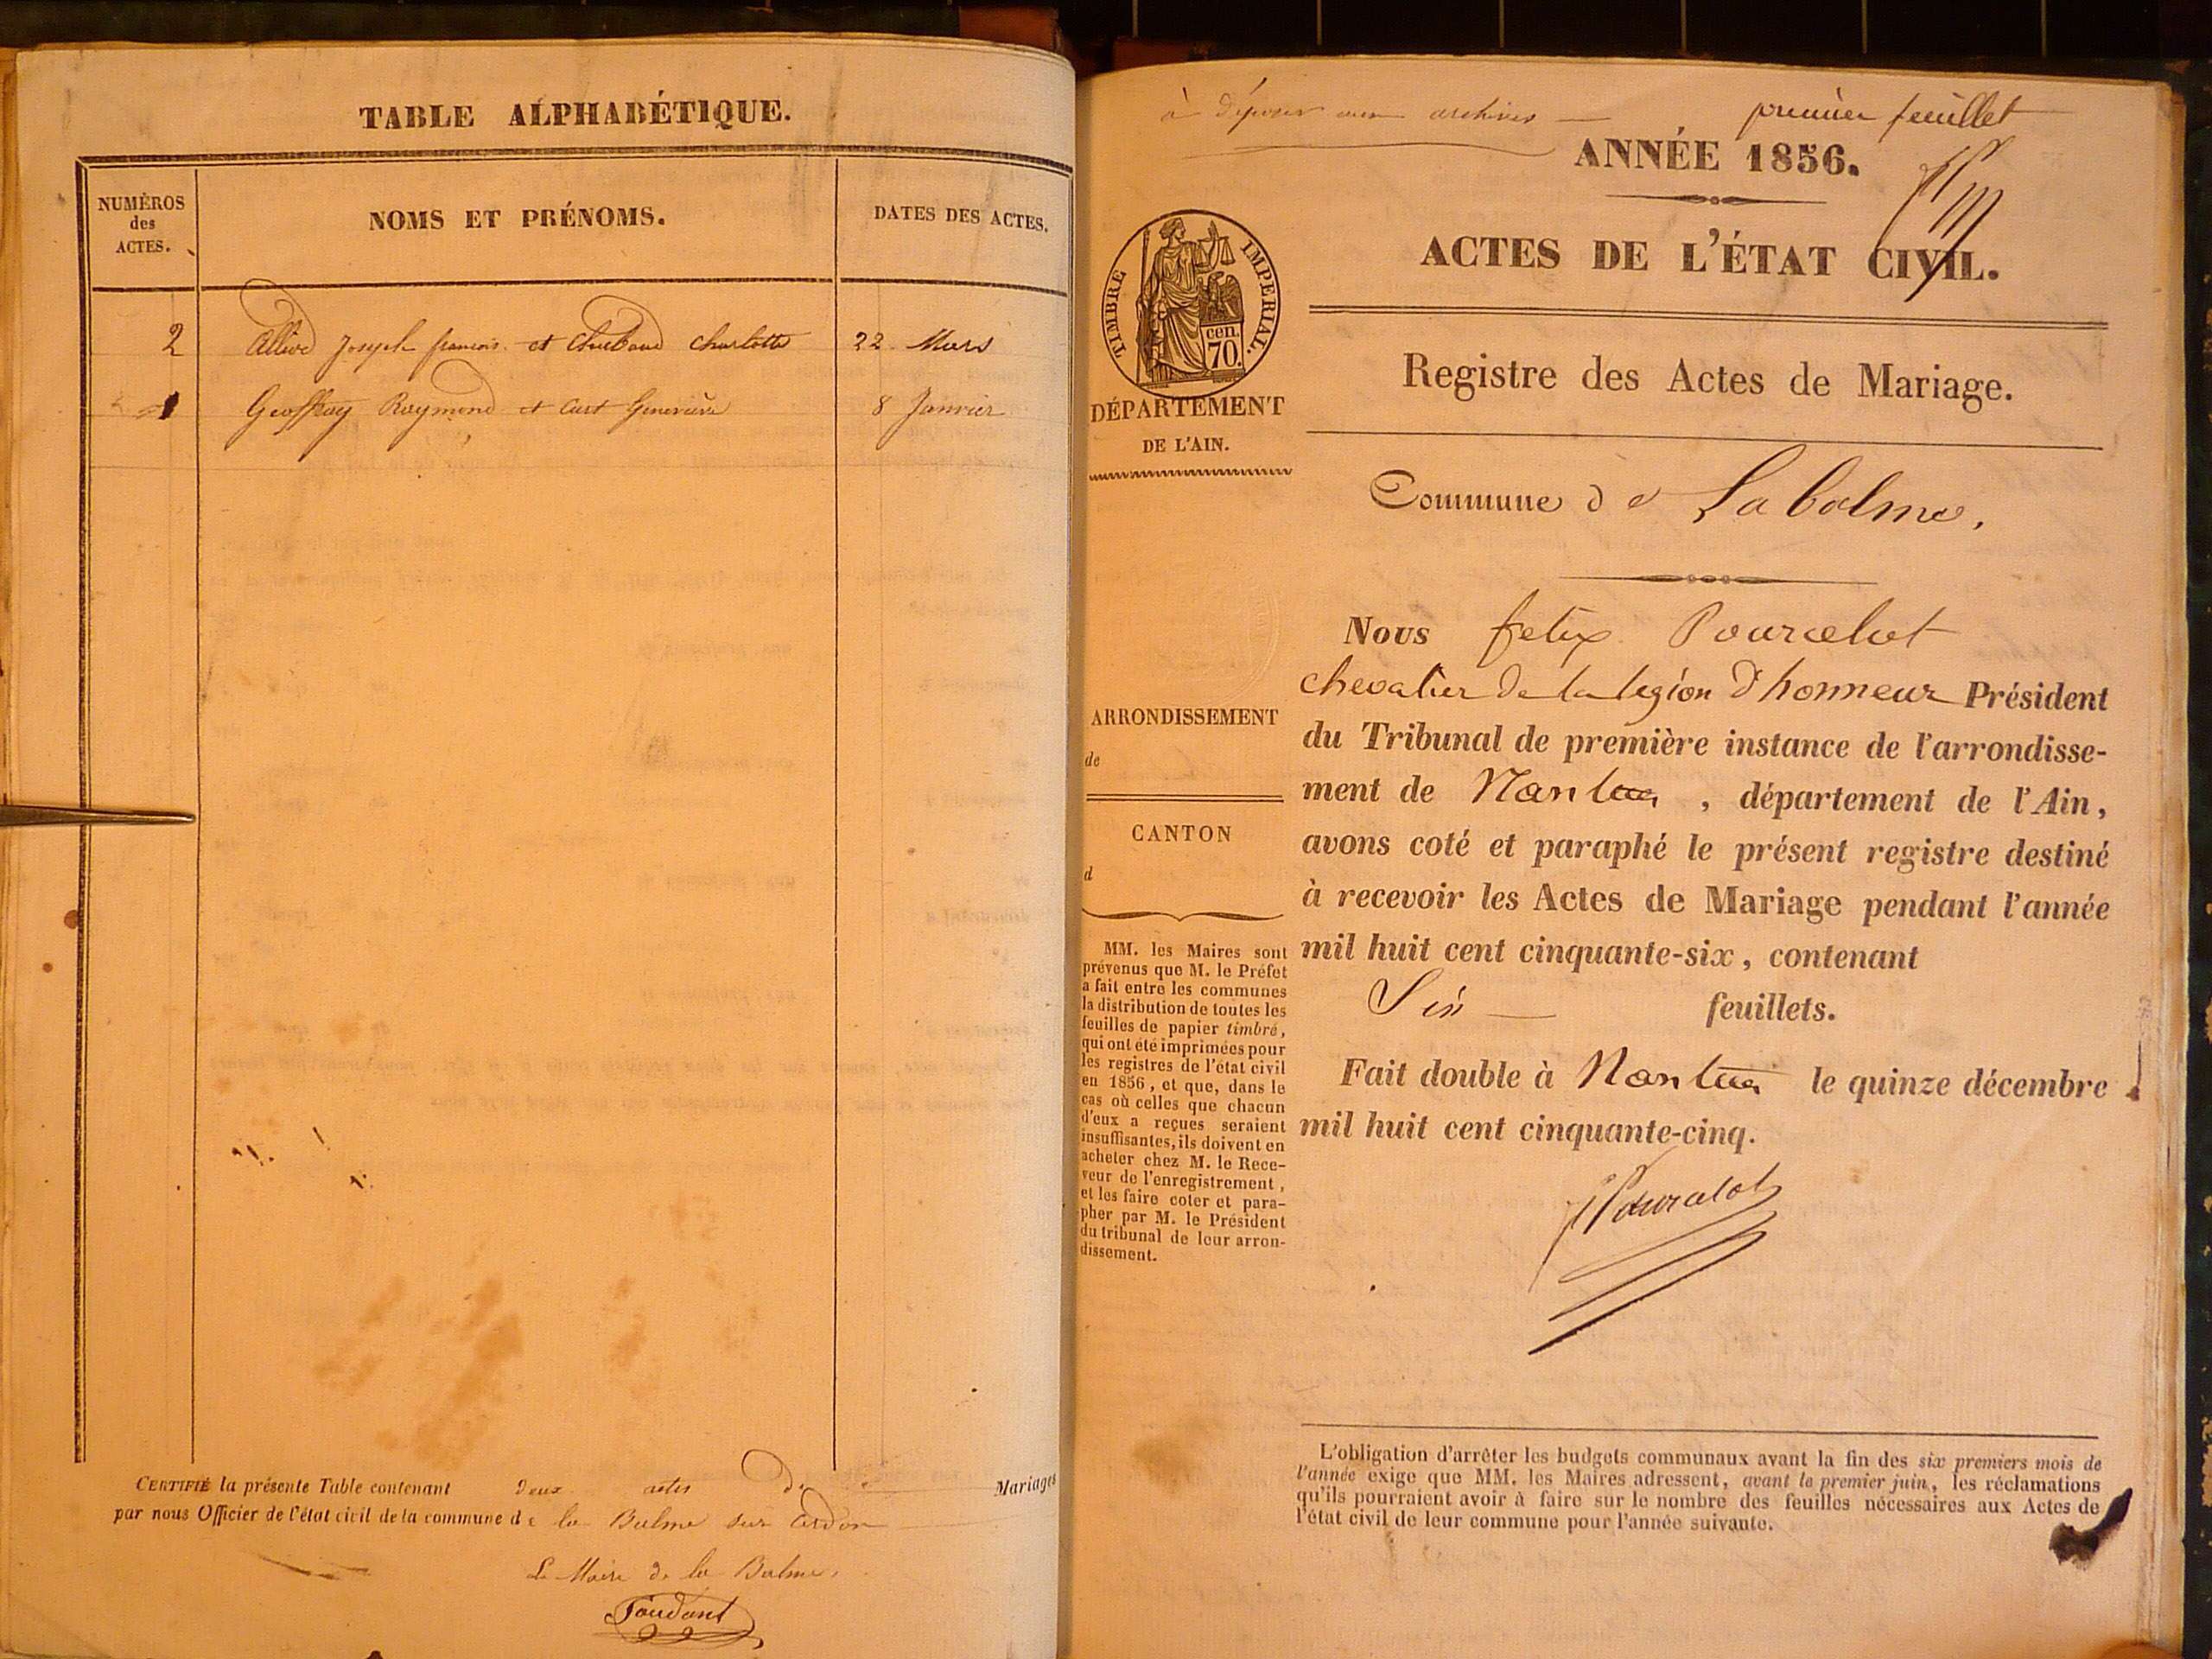 TABLE ALPHABÉTIQUE.
NUMÉROS
des
ACTES.
NOMS ET PRÉNOMS.
DATES DES ACTES.
2 Joseph françois et Charlotte 22 Mars
1 Geoffray Raymond et Curt Geneviève 8 Janvier
CERTIFIÉ la présente Table contenant deux actes de Mariages
par nous Officier de l'état civil de la commune de la Balme sur Cerdon
Le Maire de la Balme,
à déposer aux archives — premier feuillet
ANNÉE 1856.
ACTES DE L'ÉTAT CIVIL.
TIMBRE IMPERIAL.
cen.
70.
DÉPARTEMENT
DE L'AIN.
Registre des Actes de Mariage.
Commune de La balme.
Nous felix Pourcelot
chevalier de la legion d'honneur Président
du Tribunal de première instance de l'arrondisse-
ment de Nantua, département de l'Ain,
avons coté et paraphé le présent registre destiné
à recevoir les Actes de Mariage pendant l'année
mil huit cent cinquante-six, contenant
Six — feuillets.
Fait double à Nantua le quinze décembre
mil huit cent cinquante-cinq.
fPourcelot
ARRONDISSEMENT
de
CANTON
d
MM. les Maires sont
prévenus que M. le Préfet
a fait entre les communes
la distribution de toutes les
feuilles de papier timbré,
qui ont été imprimées pour
les registres de l'état civil
en 1856, et que, dans le
cas où celles que chacun
d'eux a reçues seraient
insuffisantes, ils doivent en
acheter chez M. le Rece-
veur de l'enregistrement,
et les faire coter et para-
pher par M. le Président
du tribunal de leur arron-
dissement.
L'obligation d'arrêter les budgets communaux avant la fin des six premiers mois de
l'année exige que MM. les Maires adressent, avant le premier juin, les réclamations
qu'ils pourraient avoir à faire sur le nombre des feuilles nécessaires aux Actes de
l'état civil de leur commune pour l'année suivante.